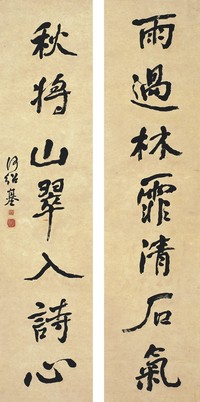 雨過林霏清石氣
秋将山翠入詩心
何紹基